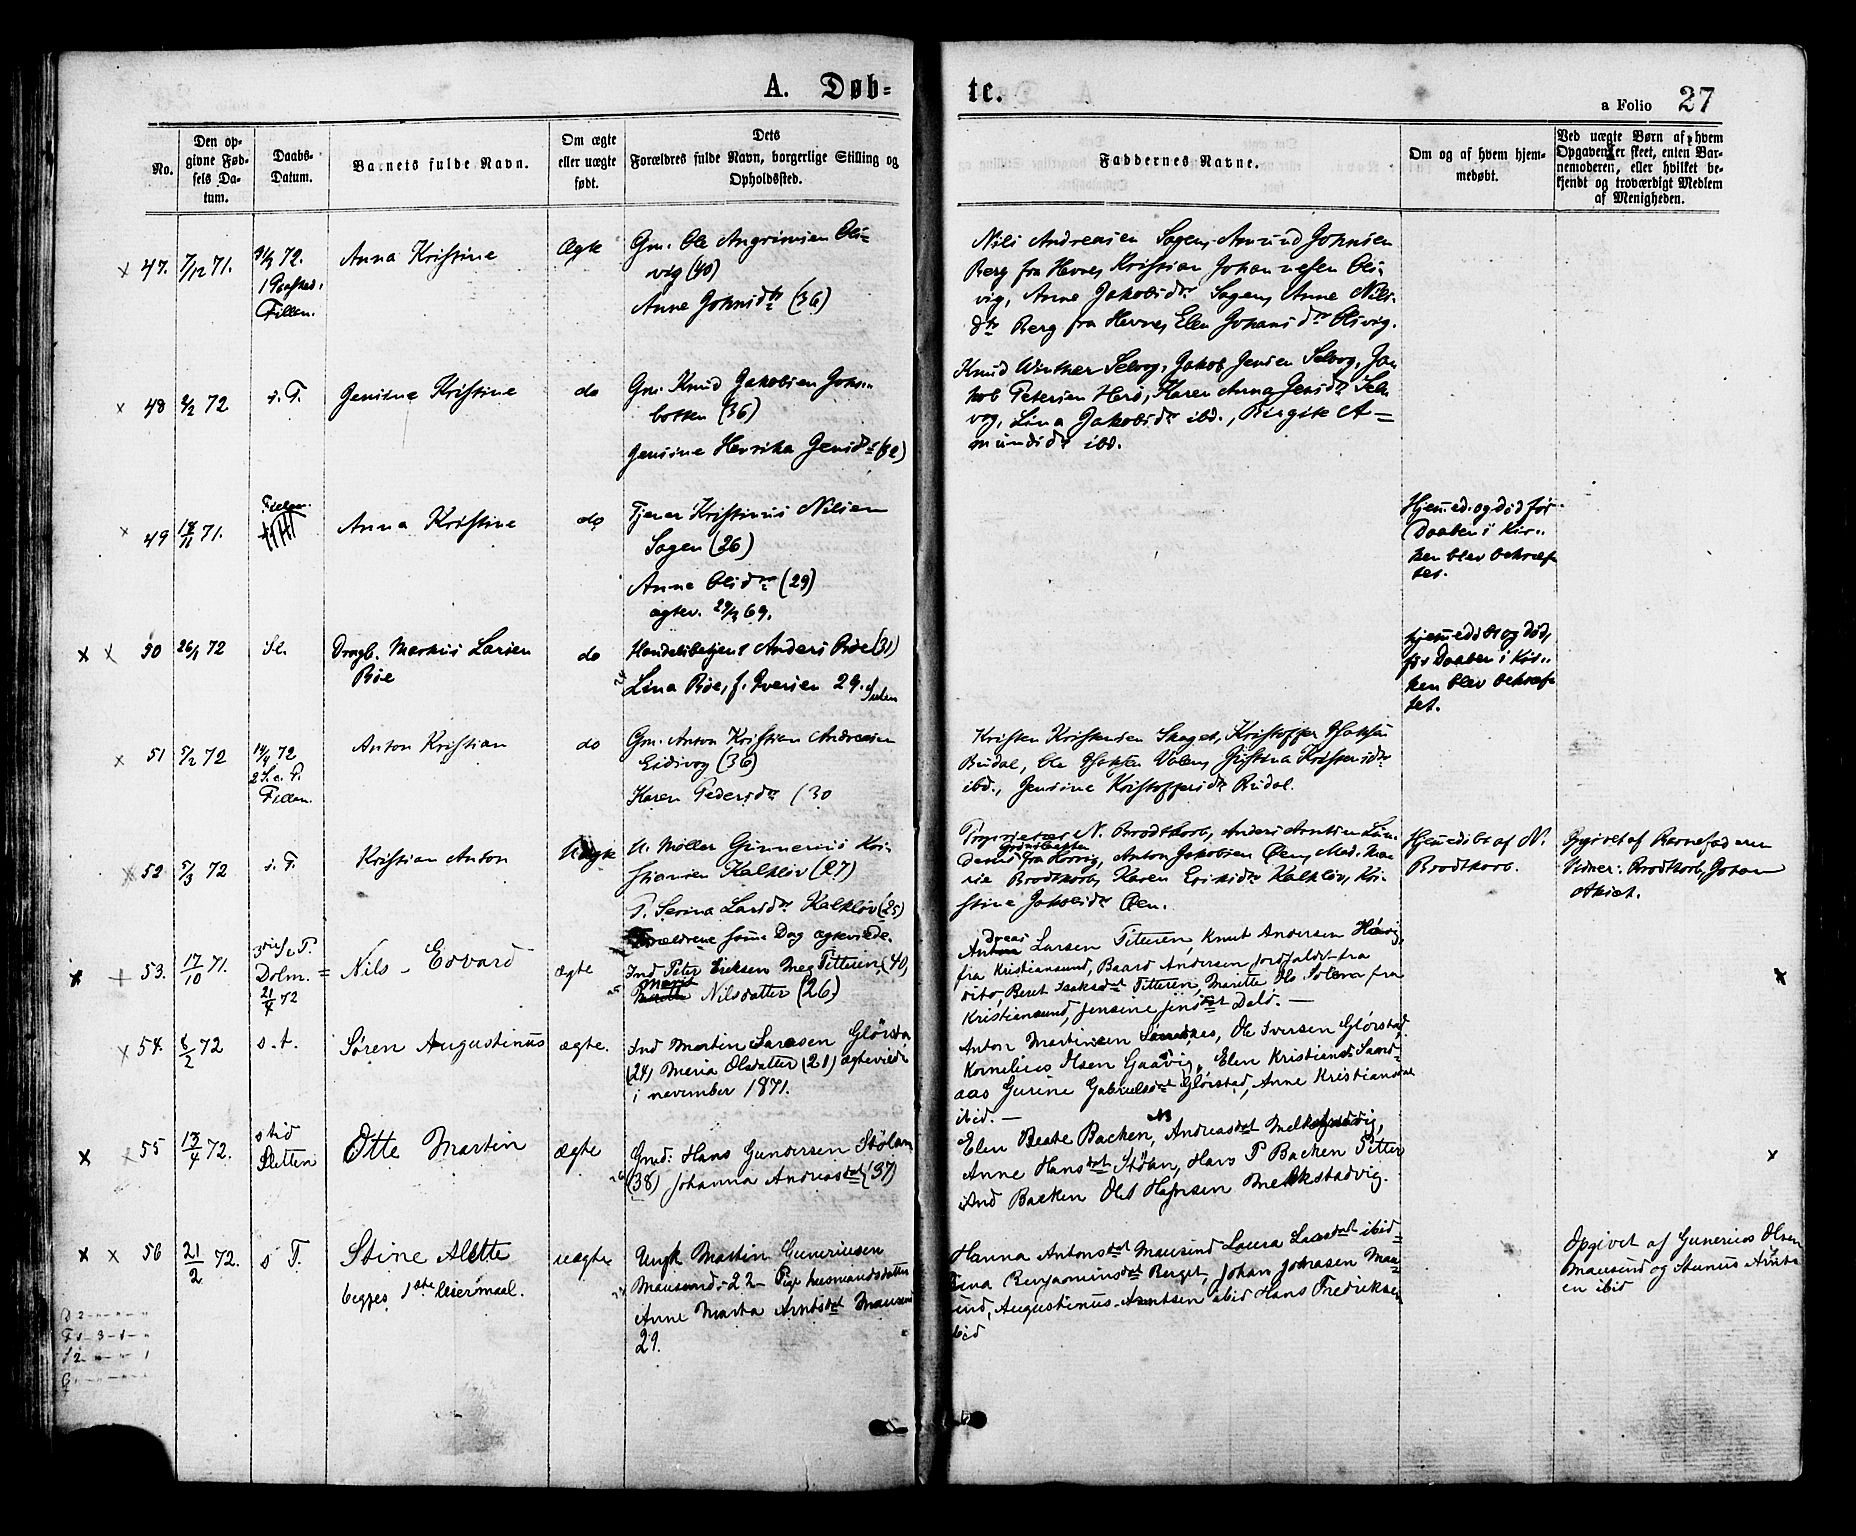 A. Døb-
te.
a Folio 27
No.
Den op-
givne Fød-
sels Da-
tum.
Daabs-
Datum.
Barnets fulde Navn.
Om ægte
eller uægte
født.
Dets
Forældres fulde Navn, borgerlige Stilling og
Opholdssted.
Faddernes Navne.
Om og af hvem hjem-
medøbt.
Ved uægte Børn af hvem
Opgaven er skeet, enten Bar-
nemoderen, eller hvilket be-
kjendt og troværdigt Medlem
af Menigheden.
47. 7/12 71.
72.
Fillan.
Anna Kristine
Ægte
Gm. Ole Angrimsen Ols-
vig (40)
Anne Johnsdtr (36)
Nils Andreasen Sagen, Amund Johnsen
Berg fra Hevne, Kristian Johannesen Ols-
vig, Anne Jakobsdtr Sagen, Anne Nils-
dtr Berg fra Hevne, Elen Johansdtr Olsvig.
48 2/2 72
s. T.
Jensine Kristine
do
Gm. Knud Jakobsen
botten (36)
Jensine Henrika Jensdtr
Knud Winther Selvog, Jakob Jensen Selvog, Ja-
kob Petersen Herø, Karen Anna Jensdtr Sel-
vog, Lina Jakobsdtr ibd., Birgite A-
mundsdtr ibd.
49 18/11 71.
Anna Kristine
do
Tjener Kristinus Nilsen
Sagen (26)
Anne Olsdtr (29)
ægtev. 69.
Hjemmed. og død før
Daaben i Kir-
ken blev bekræf-
tet.
50 26/1 72
Sl.
Drngb. Markus Larsen
Bøe
do
Handelsbetjent Anders Bøe (31)
Lina Bøe, f. Iversen 29.
hjemmedøbt og død,
før Daaben i Kir-
ken blev bekræf-
tet.
51 5/2 72
14/4 72
2 S. e. P.
Fillan.
Anton Kristian
do
Gm. Anton Kristian Andreasen
Eidsvog (36)
Karen Pedersdtr (30
Kristen Kristensen Skaget, Kristoffer Isaksen
Burdal, Ole Isaksen Valen, Justina Kristensdtr
ibd., Jensine Kristoffersdtr Burdal.
52 5/3 72
s. T.
Kristian Anton
Uægte
U. Møller Gunnerius Kri-
stiansen Kalkløv (27)
P. Serina Larsdtr Kalkløv (25)
Forældrene samme Dag ægteviede.
Proprietær N. Brodtkorb, Anders Arntsen
fra Hovig, Anton Jakobsen Øen, Mad. Ma-
rie Brodtkorb, Karen Eriksdtr Kalkløv, Kri-
stine Jakobsdtr Øen.
Hjemmedøbt af N.
Brodtkorb.
Opgivet af Barnefaderen
Vidner: Brodtkorb, Johan
53. 17/10 71.
3die S. e. P.
Dolm.
21/4 72
Nils Edvard
ægte
Ind Peter Eriksen Meg Titteren (40)
Marit
Nilsdatter (26)
dreas
Larsen Titteren, Knut Andersen
fra Kristiansund, Baard Andersen fra
dito, Beret Isaksdat Titteren, Maritte fra
Kristiansund, Jensine Jensdat Dalø. —
54. 6/2 72
s. t.
Søren Augustinus
ægte.
Ind Martin Larsen Glørstad
(24) Maria Olsdatter (21) ægteviede
i november 1871.
Anton Martinsen Sandaas, Ole Iversen Glørstad.
Kornelius Olsen Gaasvig, Elen Kristiansd Sand-
aas Gurine Gabrielsdat Glørstad, Anne Kristiansdat
ibid. —
55 13/4 72.
stid
Sletten
Otte Martin
ægte
Gmd: Hans Gundersen Stølan
(38) Johanna Andreasdat (37)
Elen Beate Backen, Andreasdat Melkstadvig,
Anne Hansdat Stølan, Hans P Backen Petter
And Backen Olst Hansen Melkstadvig.
56 21/2 72.
s T.
Stine Alette
begges 1ste leiermaal.
uægte
Ungk Martin Gunerius­sen
Mausund 22 - Pige husmandsdatter
Anne Marta Arntsdat Mausund
29.
Hanna Antonsdat Mausund Laura Larsdat ibid-
Benjaminsdat Berget, Johan Johnsen Mau-
sund, Augustinus Arntsen ibid Hans Fredriksen
ibid
Opgivet af Gunerius Olsen
Mausund og Arnts-
en ibid